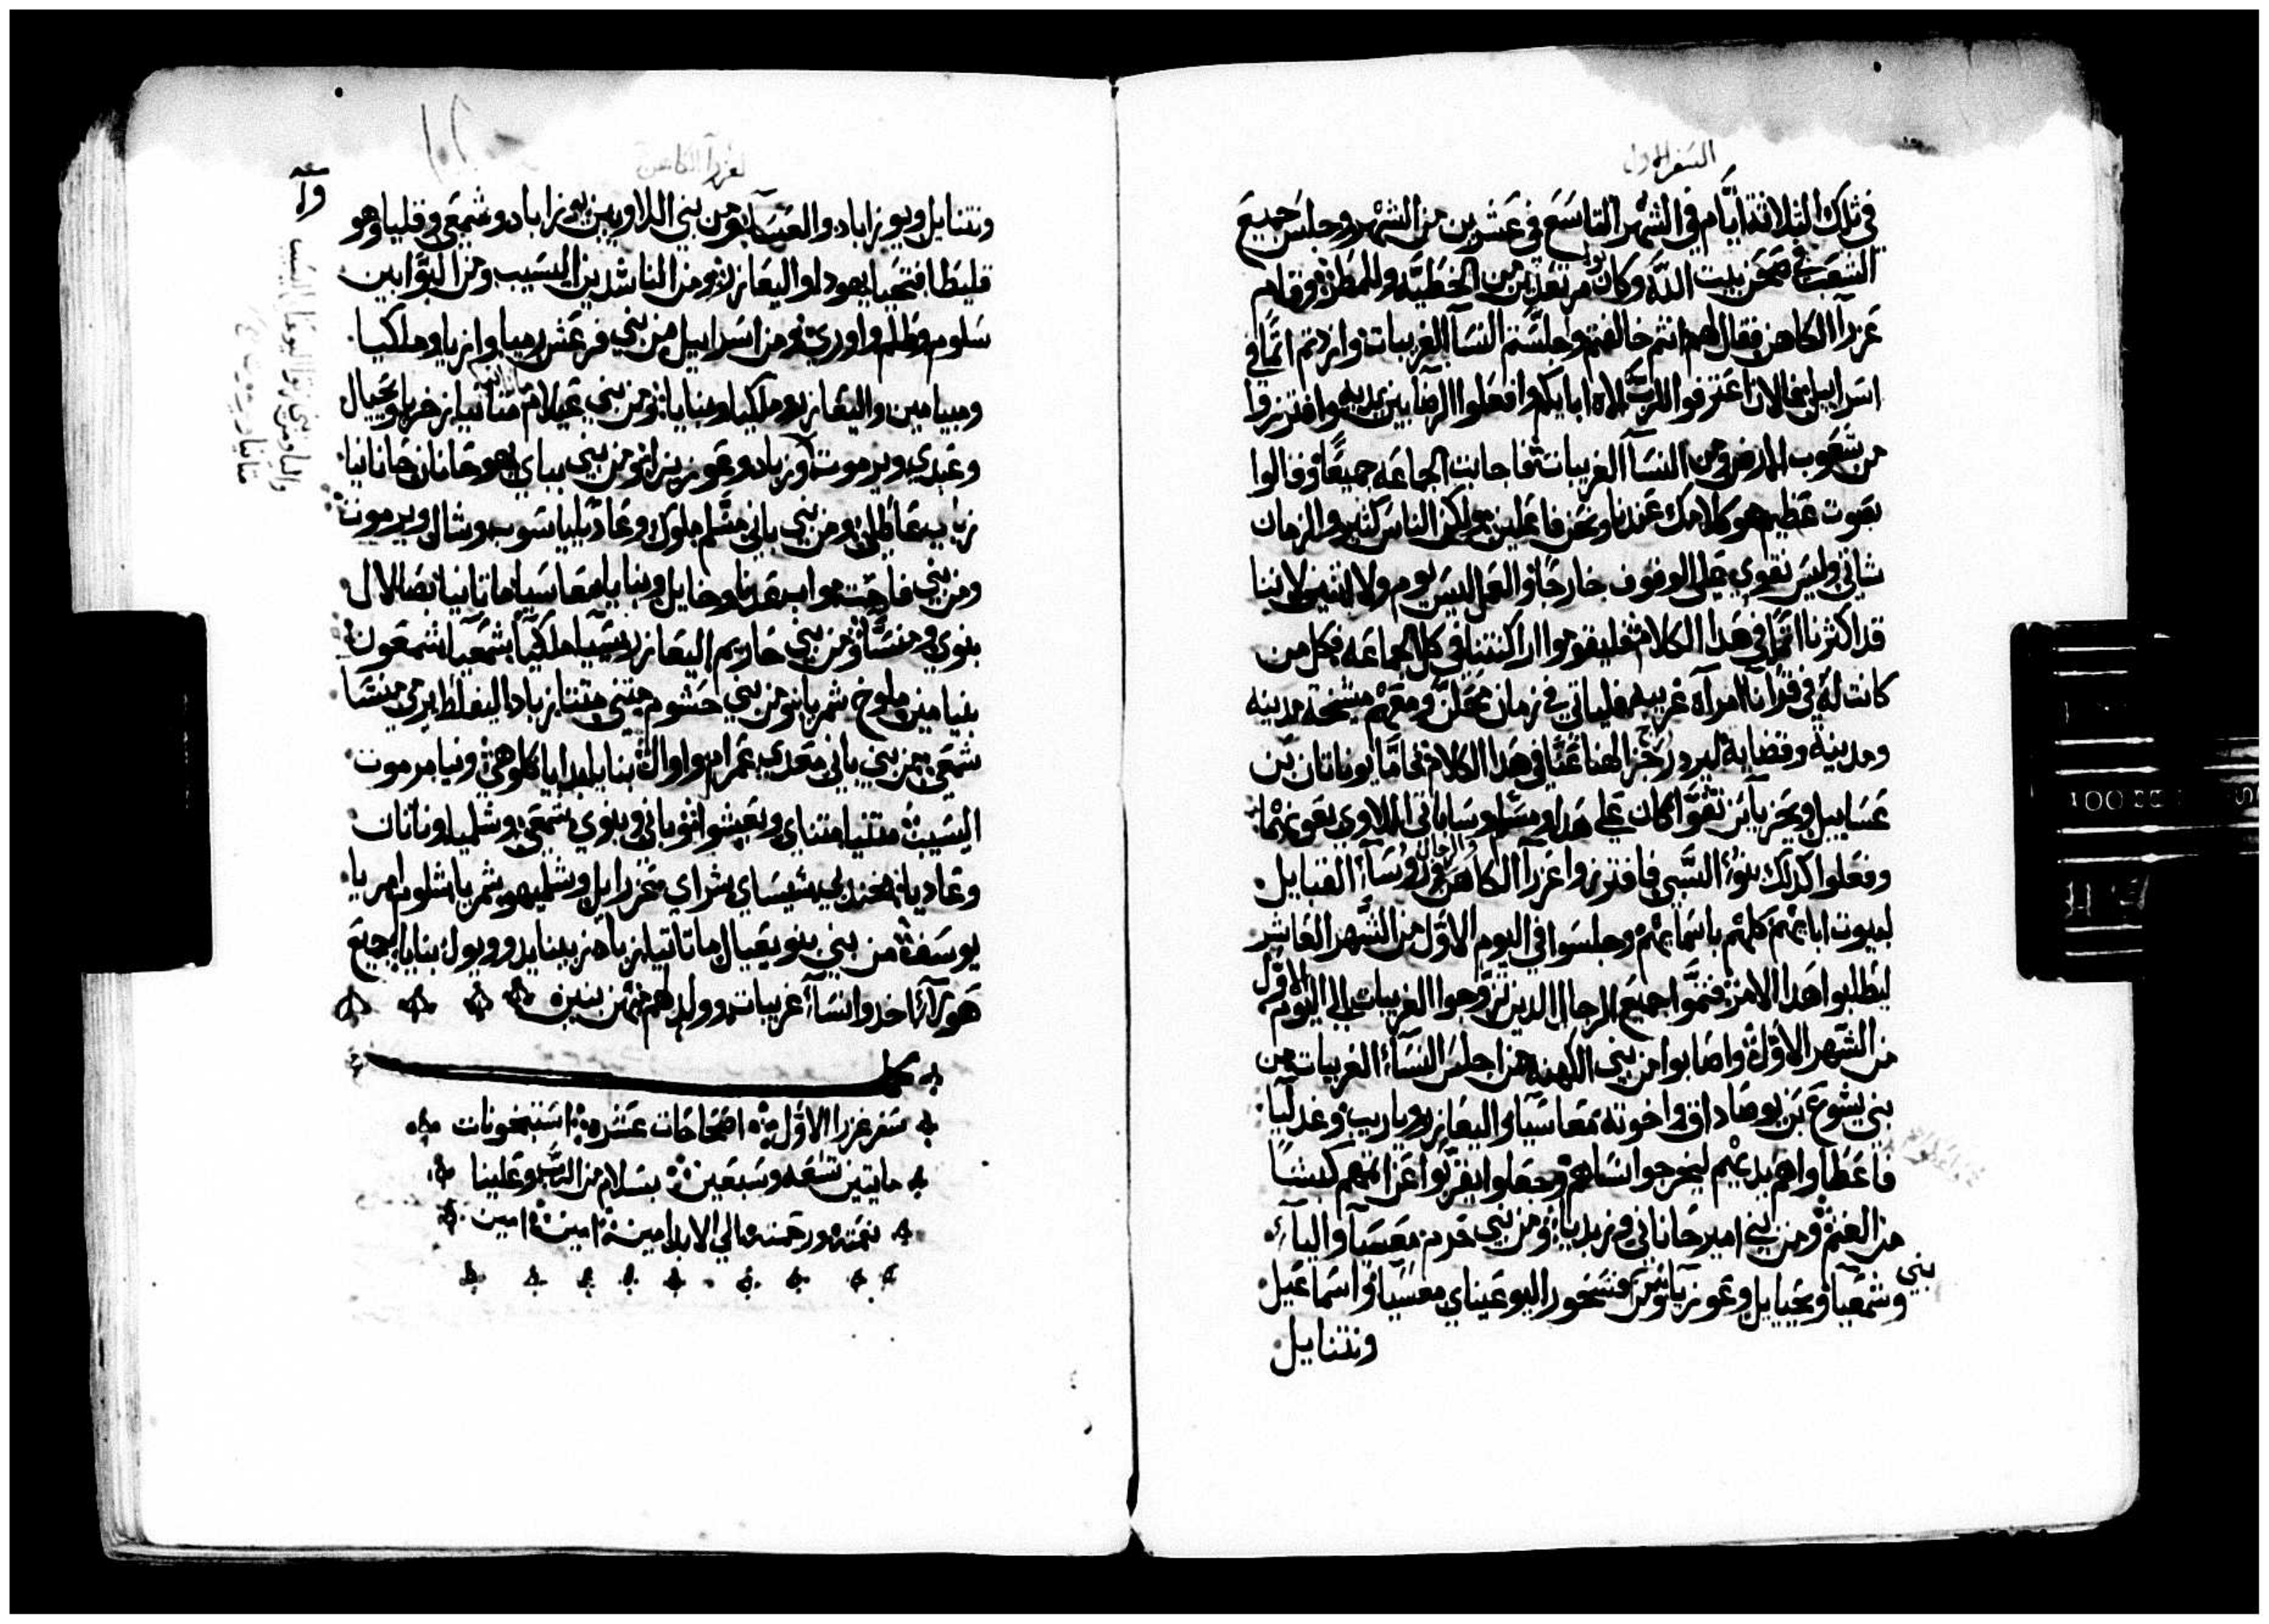 السفر الاول
في تلك الثلاثة ايام في الشهر التاسع في عشرين من الشهر وجلس جميع
الشعب في صحن بيت الله وكانوا مرتعدين من الخطيه والمطر وقام
عزرا الكاهن فقال لهم انتم خالفتم وجلستم النسآ الغريبات وازدتم اثما في
اسراييل فالان اعترفوا للرب الاه ابايكم وافعلوا الرضا بين يديه وافترزوا
من شعوب الارض ومن النسآ الغريبات فاجابت الجماعه جميعًا وقالوا
بصوت عظيم هو كلامك عندنا ونحن فاعلين ولكن الناس كثير والزمان
شاتي وليس نقوي على الوقوف خارجًا والعمل ليس يوم ولا اثنين لاننا
قد اكثرنا اثما في هدا الكلام فليقوموا اراكنتنا في كل الجماعه فكل من
كانت له في قرانا امرآه غريبه فلياتي في زمان ومعهم مشيخة مدينه
ومدينة وقضاية ليرد رجز الهنا عنا في هدا الكلام فاما يوناتان بن
عساييل ويحزيا بن تقوا كان علي هدا ومسلم وساباتي اللاوي
وفعلوا كدلك بنوا السبي فافترزوا عزرا الكاهن والرجال روسآ القبايل
لبيوت ابايهم كلهم باسمايهم وجلسوا في اليوم الاول من الشهر العاشر
ليطلبوا هدا الامر فتموا جميع الرجال الدين تزوجوا الغريبات الي اليوم الاول
من الشهر الاول واصابوا من بني الكهنه من اجلس النسآ الغريبات من
بني يشوع بن يوصاداق واخوته معاسيا واليعازر وياريب وغدليا
فاعطوا هم يديهم ليخرجوا نساهم وجعلوا يقربوا عن اثمهم كبشا
من الغنم ومن بني امير حاناني وزبديا ومن بني حرم معسيا واليا
وشمعيا ويحيايل وعوزيا ومن بني فشحور اليوعيناي معسيا واسماعيل
ونتنايل
لعزرا الكاهن
ونتنايل ويوزاباد والعسا ومن بني اللاويين يوزاباد وشمعي وقليا وهو
قليطا فتحيا يهودا واليعازر ومن الناشدين اليسيب ومن البوابين
سلوم وطلم واوري ومن اسراييل من بني فرعش رميا وازيا وملكيا
ومييامين واليعازر وملكيا وبنايا ومن بني عيلام متانيا زخريا ويحيال
وعبدي ويرموت وزباد وعوزيزا ومن بني يباي يهوحانان حانانيا
زباي عاتلي ومن بني باني مشلم ملوك وعاديا ياسوب وشال ويرموت
بنوي ومنسا ومن بني حاريم اليعازر يسيا ملكيا شمعيا شمعون
بنيامين ملوخ شمريا ومن بني حشوم متني متتا زباد اليفلط يرمي منسا
شمعي ومن بني باني معدي عمرام واوال بنايا بدايا كلوهي ونيا مرموت
اليسيب متنيا متناي ويعيشوا وباني وبنوي شمعي وشلميا وناتان
وعاديا شيساي شراي عزرايل وشلميهو شمريا شلوم امريا
يوسف من بني بنو يعيال ماتاتيا زبا زبينا يدو ويول بنايا جميع
هولآ اخدوا نسآ غريبات وولد لهم منهن بنين
كمل
سفر عزرا الاول اصحاحات عشره استيخونات
مايتين تسعه وسبعين بسلام من الرب وعلينا
نعمته ورحمته الي الابد امين امين امين